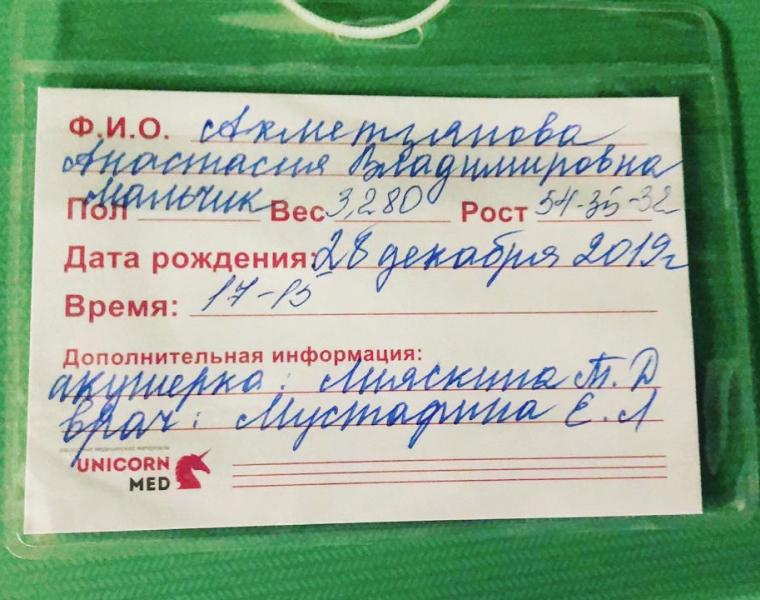 Ф.И.О. Ахметзянова
Анастасия Владимировна
Пол Мальчик Вес 3,280 Рост 54-35-32
Дата рождения: 28 декабря 2019г
Время: 17-15
Дополнительная информация:
акушерка: Мияскина Т.Д
врач: Мустафина Е.Л
расходные медицинские материалы
UNICORN
MED